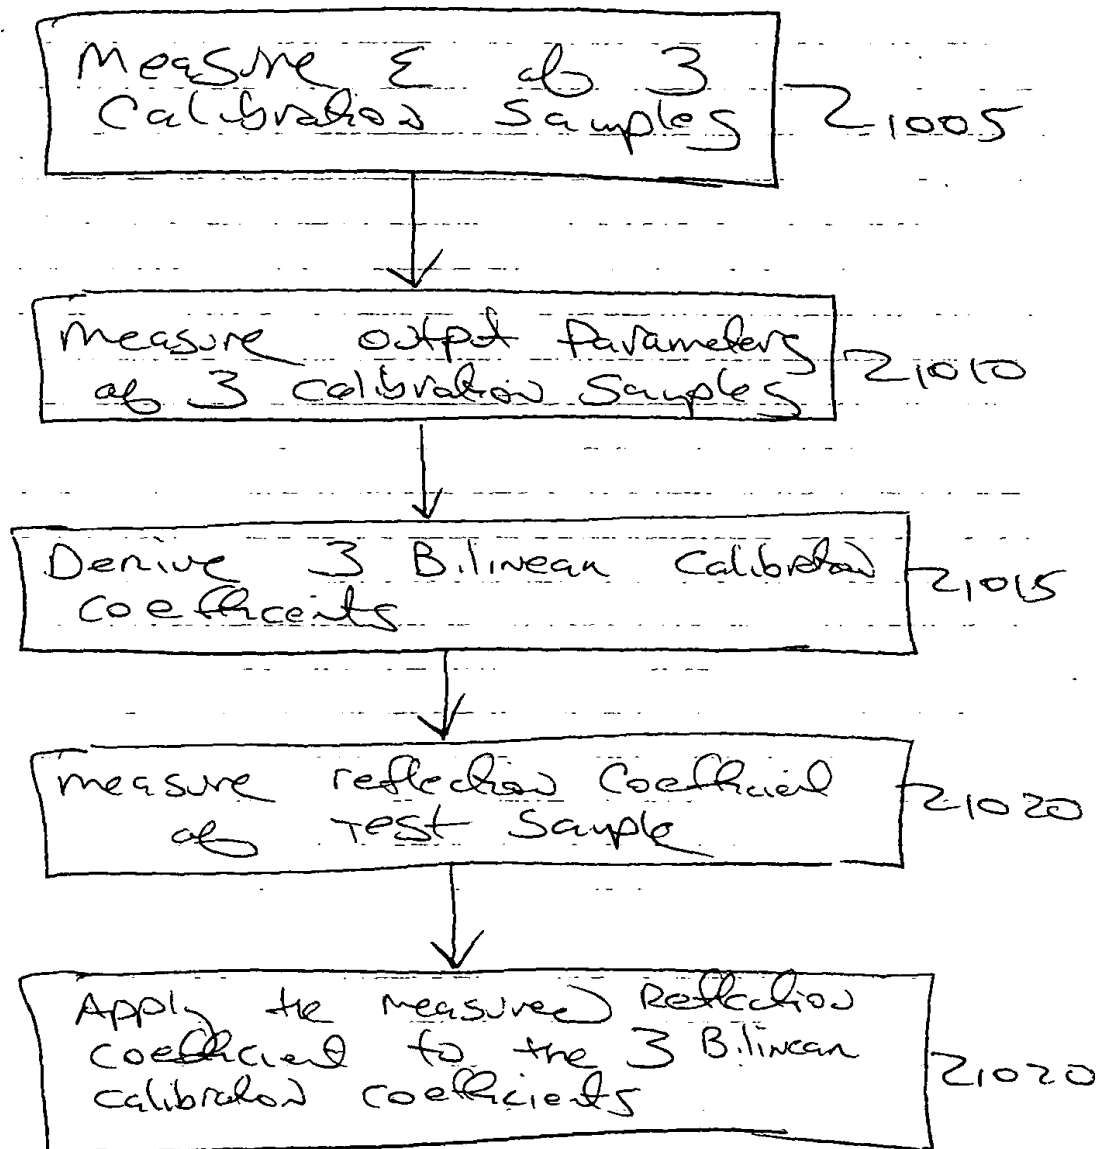 Measure ε of 3
Calibration Samples
1005
measure output Parameters
of 3 Calibration Samples
1010
Derive 3 Bilinear Calibration
coefficients
1015
measure reflection Coefficient
of Test Sample
1020
Apply the measured Reflection
coefficient to the 3 Bilinear
calibration coefficients
1020